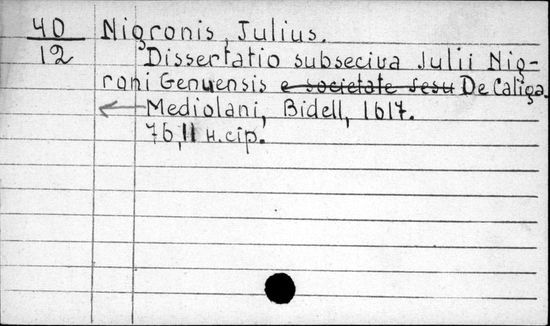 40
12
Nigronis, Julius.
Dissertatio subseciva Julii Nig-
roni Genuensis e societate Jesu De Caliga.
Mediolani, Bidell, 1617.
76,11 н.cip.